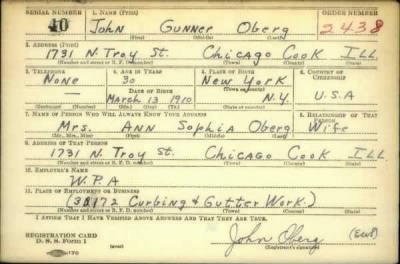 SERIAL NUMBER 1. NAME (Print) ORDER NUMBER
10 John Gunner Oberg 2438
(First) (Middle) (Last)
2. ADDRESS (Print)
1731 N. Troy St. Chicago Cook Ill
(Number and street or R. F. D. number) (Town) (County) (State)
3. TELEPHONE 4. AGE IN YEARS 5. PLACE OF BIRTH 6. COUNTRY OF CITIZENSHIP
None 30 New York
DATE OF BIRTH (Town or county)
— March 13 1910 N.Y. U.S.A
(Mo.) (Day) (Yr.) (State or country)
7. NAME OF PERSON WHO WILL ALWAYS KNOW YOUR ADDRESS 8. RELATIONSHIP OF THAT PERSON
Mrs. Ann Sophia Oberg Wife
(Mr., Mrs., Miss) (First) (Middle) (Last)
9. ADDRESS OF THAT PERSON
1731 N. Troy St. Chicago Cook Ill
(Number and street or R. F. D. number) (Town) (County) (State)
10. EMPLOYER'S NAME
W.P.A
11. PLACE OF EMPLOYMENT OR BUSINESS
(30172 Curbing & Gutter Work.)
(Number and street or R. F. D. number) (Town) (County) (State)
I AFFIRM THAT I HAVE VERIFIED ABOVE ANSWERS AND THAT THEY ARE TRUE.
REGISTRATION CARD
D. S. S. Form 1 (over) John Oberg
(Registrant's signature)